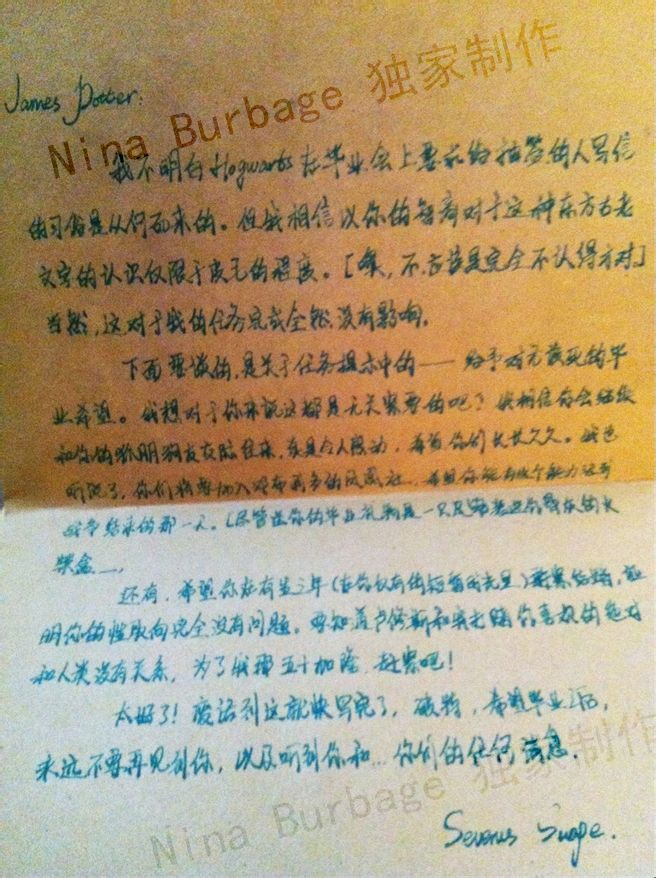 Nina Burbage 独家制作
James Potter:
我不明白Hogwarts在毕业会上要求给抽签的人写信
的习俗是从何而来的。但我相信以你的智商对于这种东方古老
文字的认识仅限于皮毛的程度。[噢,不,应当是完全不认得才对]
当然,这对于我的任务完成全然没有影响。
下面要谈的,是关于任务提示中的——给予对方最诚的毕
业希望。我想对于你来说这都是无关紧要的吧?我相信你会继续
和你的狐朋狗友在一起往来,真是令人感动,希望你们长长久久。我也
听说了,你们将要加入邓布利多的凤凰社,希望你能有这个能力活到
战争结束的那一天。(尽管
还有,希望你在有生之年(在你仅有的短暂时光里)要果断结婚,证
明你的性取向完全没有问题。要知道卢修斯和赌你喜欢的绝对
和人类没有关系,为了我那五十加隆,赶紧吧!
太好了!废话到这就快写完了,破特,希望毕业以后,
永远不要再见到你,以及听到你和…你们的任何消息。
Severus Snape.
Nina Burbage 独家制作